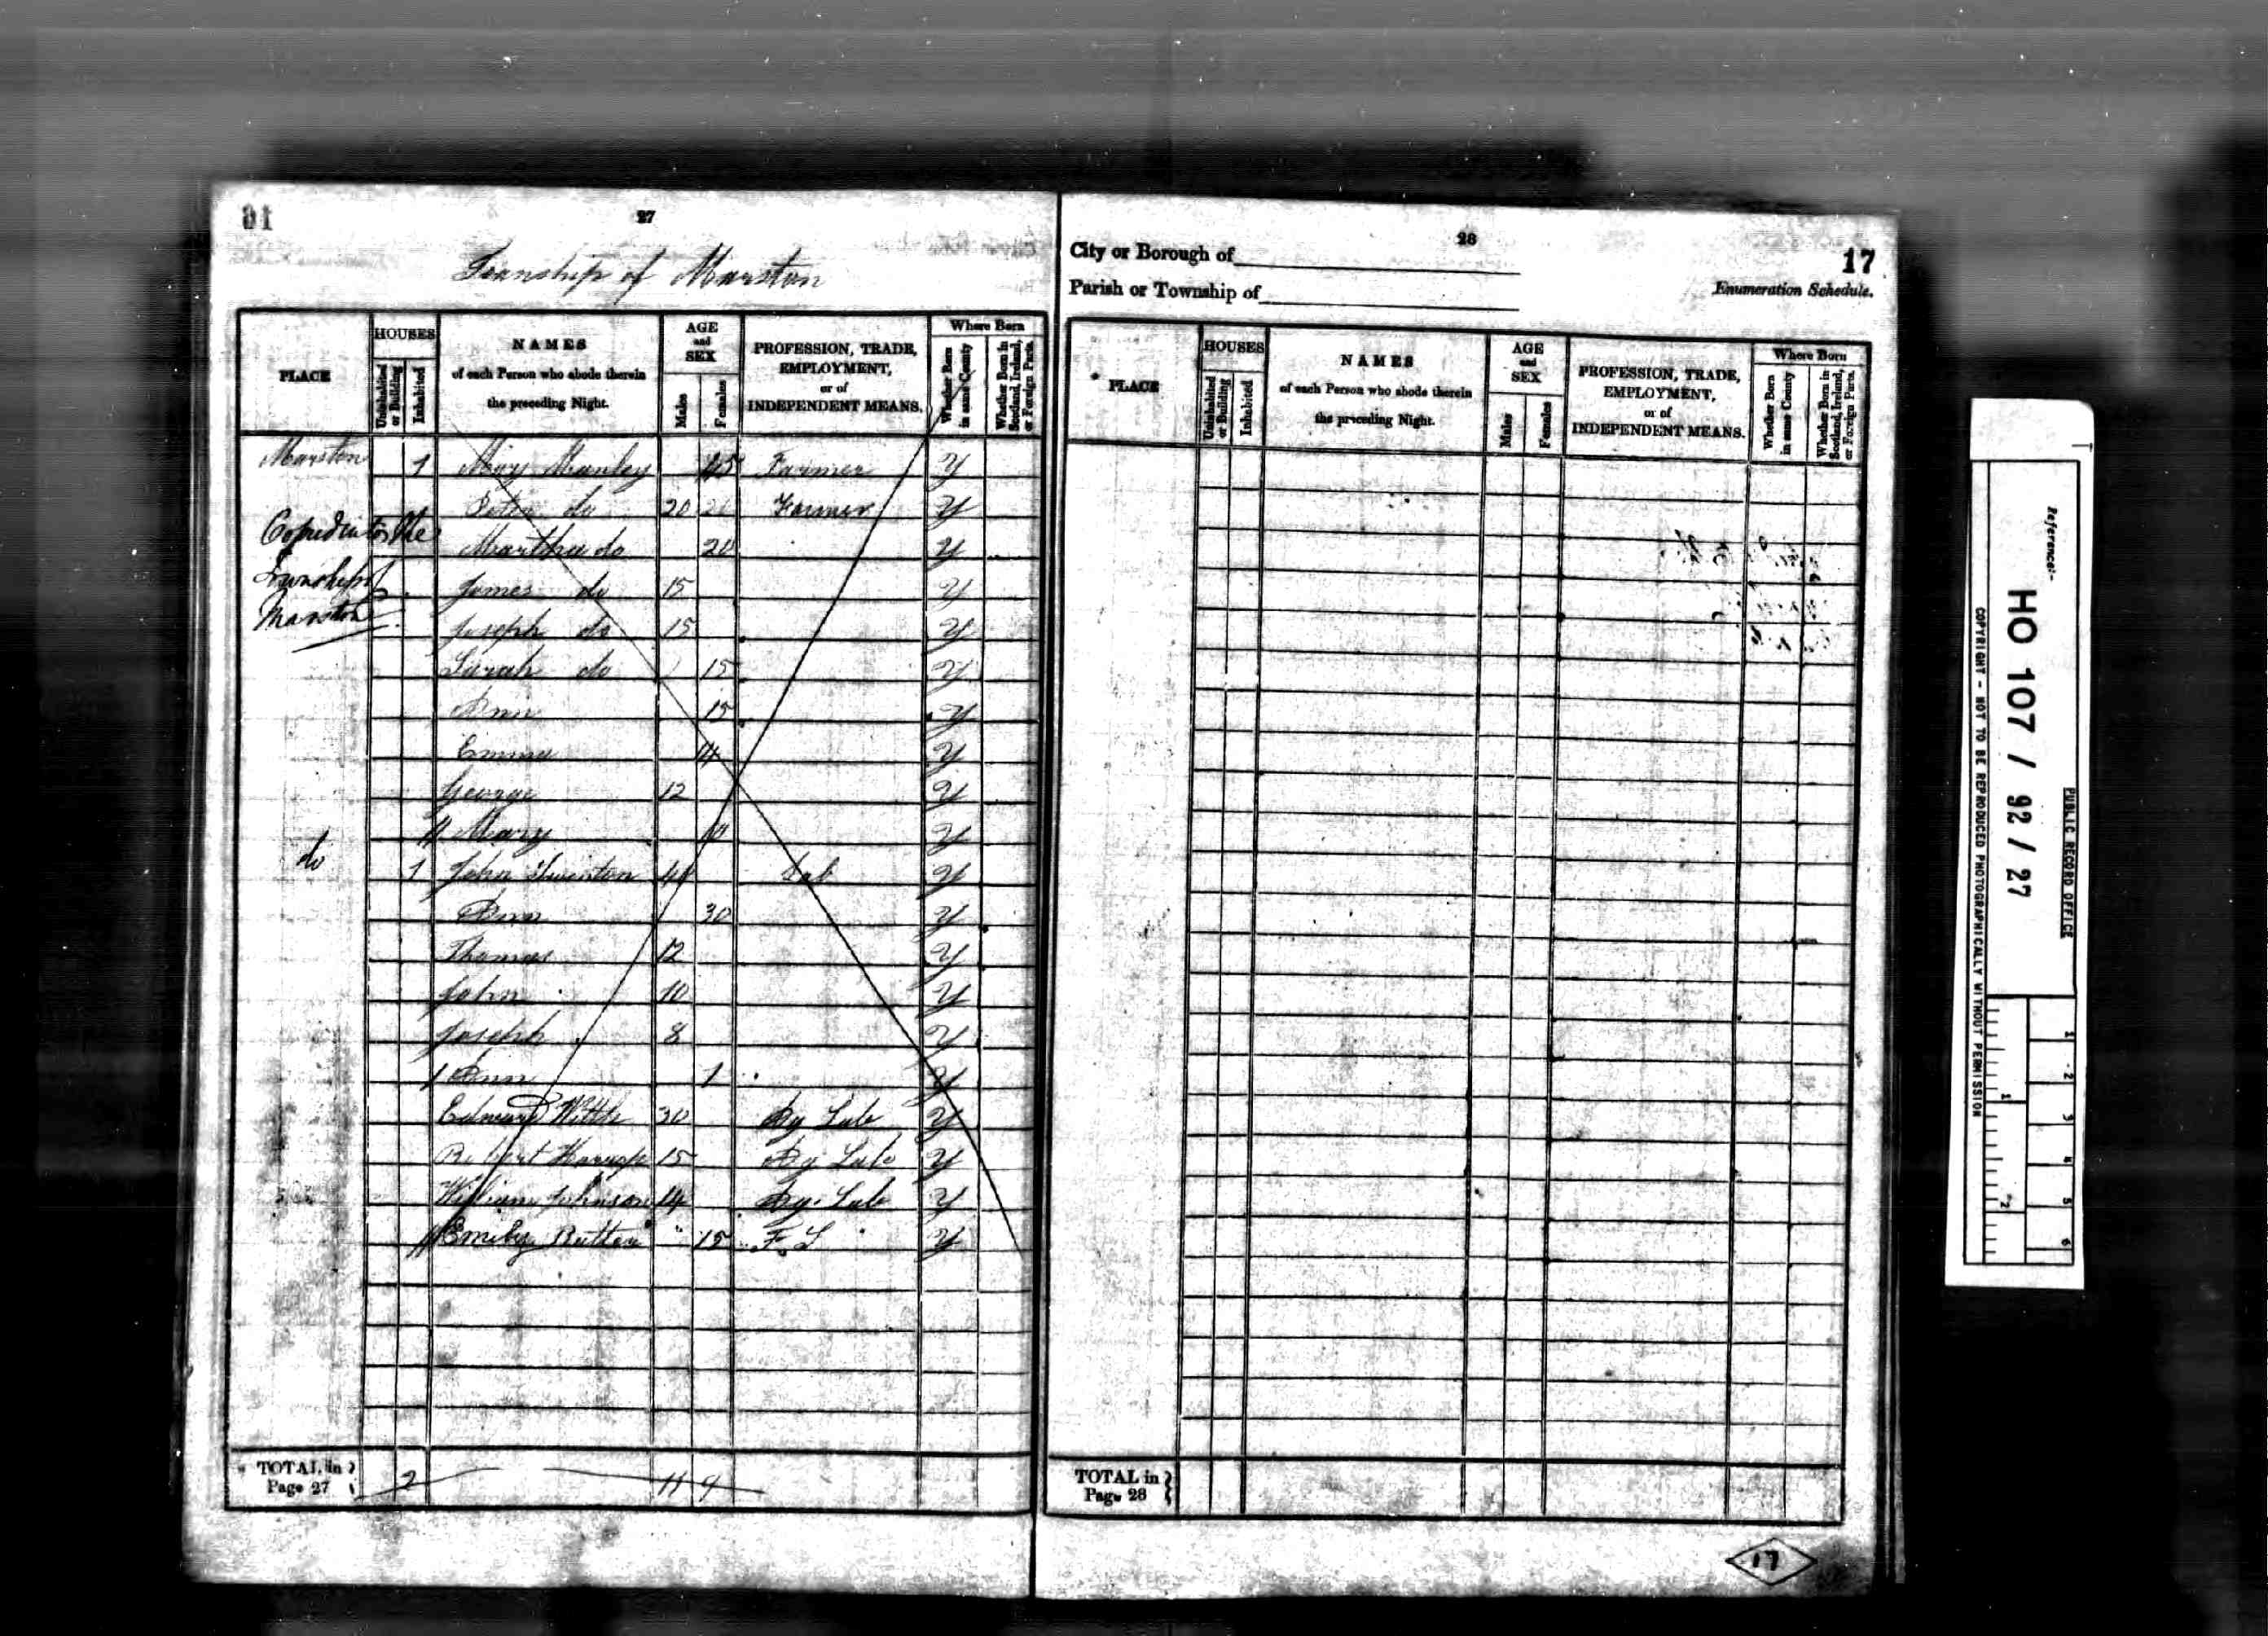 31
27
Township of Marston
PLACE
HOUSES
Uninhabited or Building
Inhabited
NAMES
of each Person who abode therein
the preceding Night.
AGE
and
SEX
Males
Females
PROFESSION, TRADE,
EMPLOYMENT,
or of
INDEPENDENT MEANS.
Where Born
Whether Born in same County
Whether Born in Scotland, Ireland, or Foreign Parts.
Marston 1 Mary Manley 45 Farmer Y
Peter do 20 Farmer Y
Copied into the
Martha do 20 Y
Township of
James do 15 Y
Marston
Joseph do 15 Y
Sarah do 15 Y
Ann 15 Y
Emma 14 Y
George 12 Y
Mary Y
do 1 John 40 Lab Y
Ann 30 Y
Thomas 12 Y
John 10 Y
Joseph 8 Y
Ann 1 Y
Edward 30 Ag Lab Y
Robert 15 Ag Lab Y
William Johnson 14 Ag. Lab Y
Emily 15 F. S Y
TOTAL in
Page 27
2 11 9
28
17
City or Borough of
Parish or Township of
Enumeration Schedule.
PLACE
HOUSES
Uninhabited or Building
Inhabited
NAMES
of each Person who abode therein
the preceding Night.
AGE
and
SEX
Males
Females
PROFESSION, TRADE,
EMPLOYMENT,
or of
INDEPENDENT MEANS.
Where Born
Whether Born in same County
Whether Born in Scotland, Ireland, or Foreign Parts.
TOTAL in
Page 28
17
PUBLIC RECORD OFFICE
Reference:-
HO 107 / 92 / 27
COPYRIGHT - NOT TO BE REPRODUCED PHOTOGRAPHICALLY WITHOUT PERMISSION
1 2 3 4 5 6
1 2